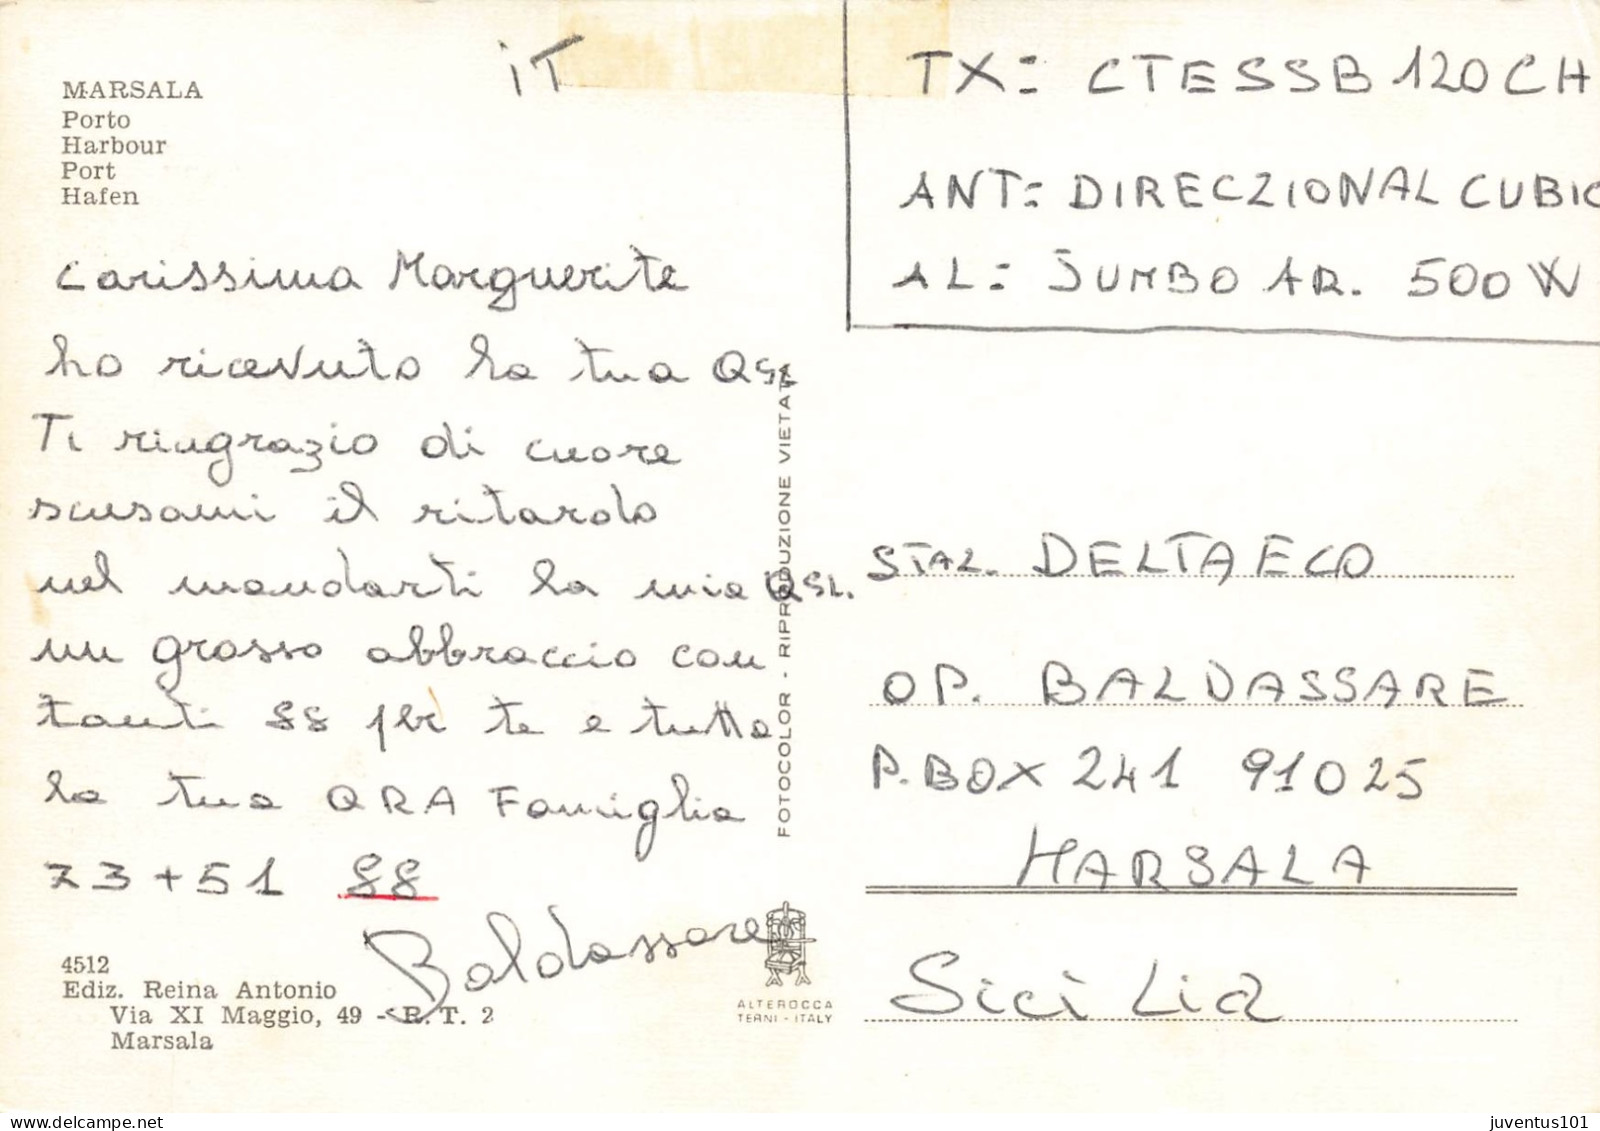 MARSALA
Porto
Harbour
Port
Hafen
iT
TX: CTESSB 120CH
ANT: DIRECZIONAL CUBIC
AL: JUMBO AR. 500 W
Carissima Marguerite
ho ricevuto la tua QSL
Ti ringrazio di cuore
scusami il ritardo
nel mandarti la mia QSL.
un grosso abbraccio con
tanti 88 per te e tutta
la tua QRA Famiglia
73+51 88
Baldassare
FOTOCOLOR - RIPRODUZIONE VIETATA
STAZ. DELTAECO
OP. BALDASSARE
P.BOX 241 91025
MARSALA
Sicilia
4512
Ediz. Reina Antonio
Via XI Maggio, 49 - R. T. 2
Marsala
ALTEROCCA
TERNI - ITALY
juventus101